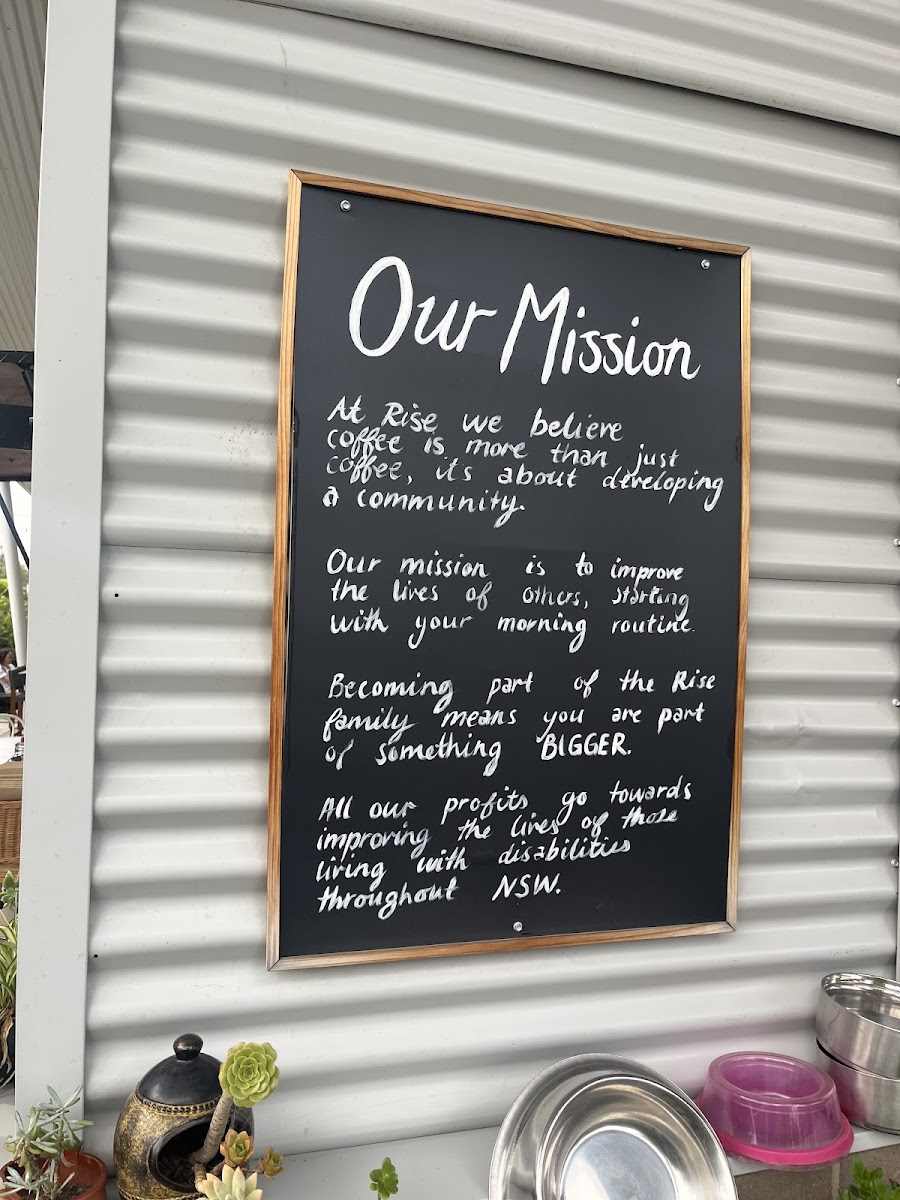 Our Mission
At Rise we believe
coffee is more than just
coffee, its about developing
a community.
Our mission is to improve
the lives of others, starting
with your morning routine.
Becoming part of the Rise
family means you are part
of something BIGGER.
All our profits go towards
improving the lives of those
living with disabilities
throughout NSW.